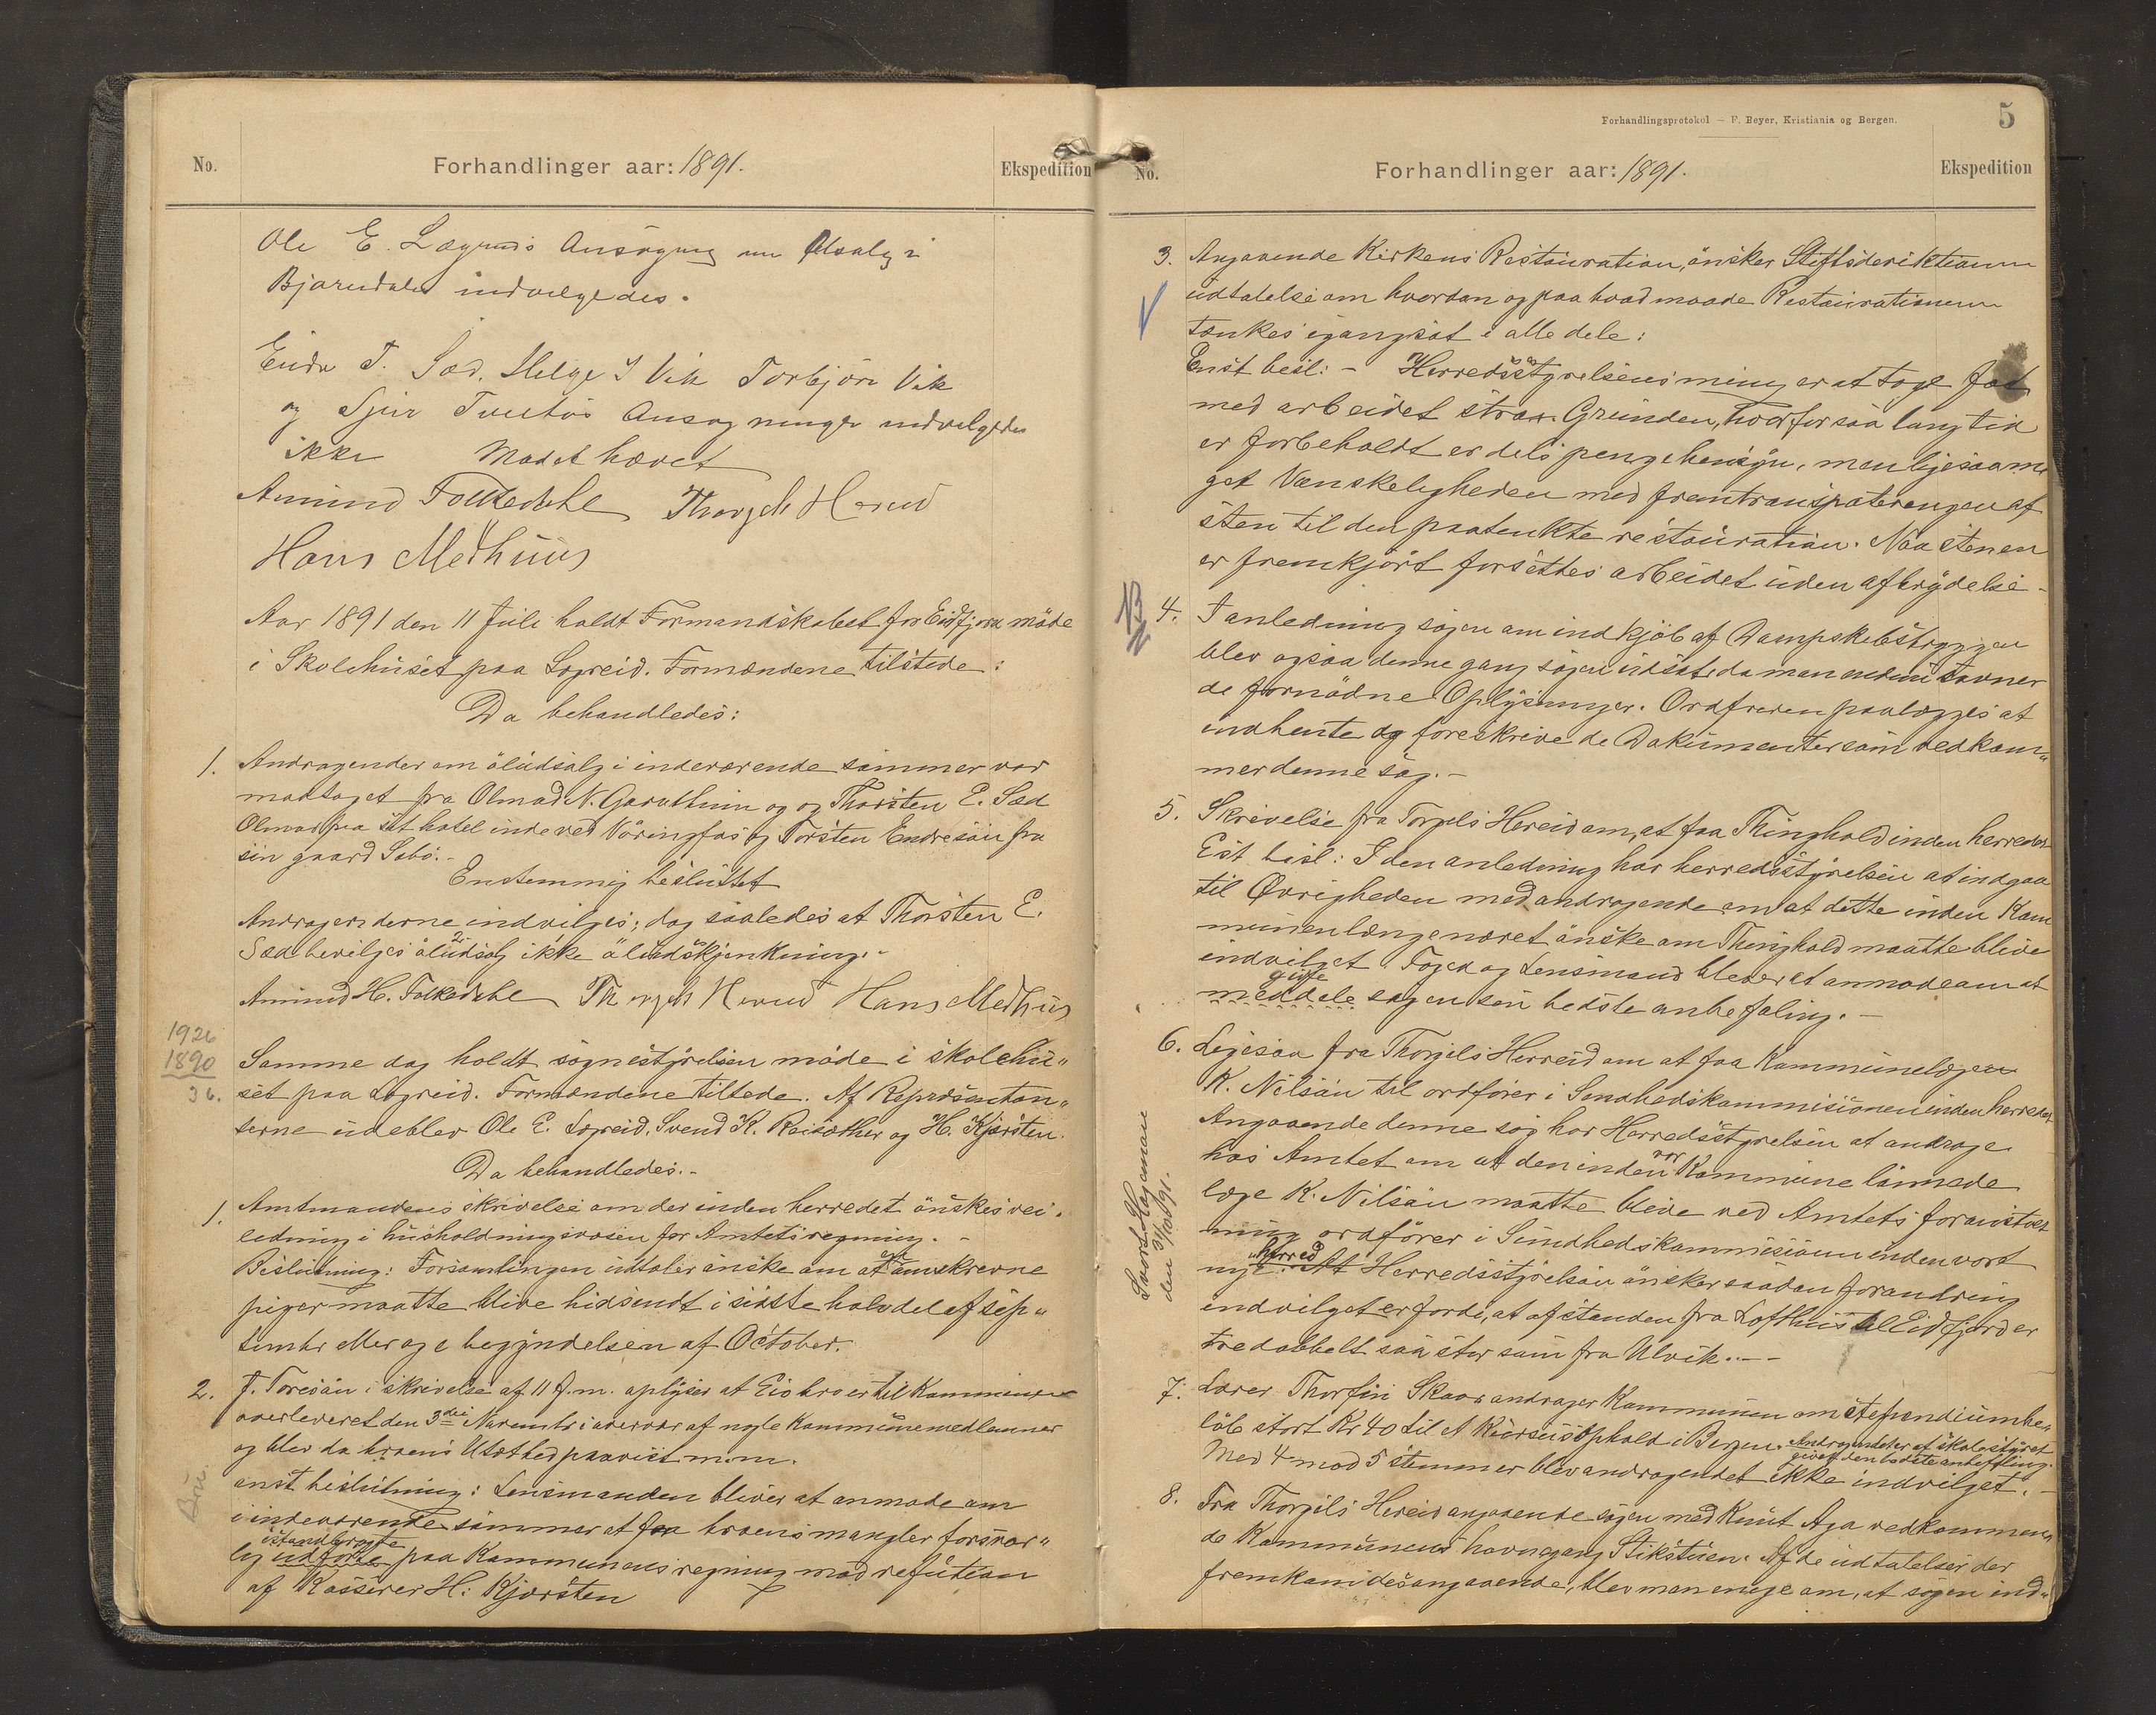 No.
Forhandlinger aar: 1891.
Ekspedition
Ole E. Lægreids Ansøgning om Ølsalg i
Bjoreidalen indvilgedes.
T. Sæd, Helge Vik Torbjörn Vik
og Sjur Tveitos Ansøgninger indvilgedes
ikke Mødet hævet
Amund Folkedahl Thorgils Hereid
Hans Medhuus
Aar 1891 den 11 Juli holdt Formandskabet for Eidfjord möde
i Skolehuset paa Lægreid. Formændene tilstede:
Da behandledes:
1. Andragender om öludsalg i indeværende sommer var
modtaget fra Olmod N. Garathun og og Thorsten E. Sæd
Olmod paa sit hotel inde ved Vöringfos og Torsten Endresön fra
sin gaard Sæbö. -
Enstemmig besluttet
Andragenderne indvilges; dog saaledes at Thorsten E.
Sæd bevilges öludsalg ikke öludskjenkning. -
Amund H. Folkedahl Thorgils Hereid Hans Medhuus
1926
1890
36.
Samme dag holdt sognestyrelsen möde i skolehu„
set paa Lægreid. Formændene tilstede. Af Repræsentan„
terne udeblev Ole E. Lægreid, Svend K. Reisæther og H. Kjærsten.
Da behandledes. -
1. Amtmandens skrivelse om der inden herredet önskes vei„
ledning i husholdningsvæsen for Amtets regning. -
Beslutning: Forsamlingen udtaler önske om at omskrevne
piger maatte blive hidsendt i sidste halvdel af sep„
tember eller og i begyndelsen af October.
2. T. Toresön i skrivelse af 11 f.m. oplyser at Eio bro er til Kommunen
overleveret den 3die Novembr i overvær af nogle Kommunemedlemmer
og blev da broens Utæthed paavist m.m.
enst. beslutning: Lensmanden bliver at anmode om
i indeværende sommer at faa broens mangler forsvar„
istandbragte
lig udförte paa Kommunens regning mod refution
af Kasserer H: Kjærsten
Bru.
Forhandlingsprotokol — F. Beyer, Kristiania og Bergen.
5
No.
Forhandlinger aar: 1891.
Ekspedition
3. Angaaende Kirkens Restauration, önsker Stiftsderektionen
udtalelse om hvordan og paa hvad maade Restaurationen
tænkes igangsat i alle dele:
Enst besl: - Herredsstyrelsens mening er at tage fat
med arbeidet strax. Grunden, hvorfor saa lang tid
er forbeholdt er dels pengehensyn, men ligesaame
get Vanskeligheden med fremtransporteringen af
sten til den paatenkte restauration. Naa stenen
er fremkjört forsettes arbeidet uden afbrydelse -
NB
4. I anledning sagen om indkjöb af Dampskibsbryggen
blev ogsaa denne gang sagen udsat, da man endnu savner
de fornödne Oplysninger. Ordföreren paalægges at
indhente og foreskrive de Dokumenter som vedkom„
mer denne sag. -
5. Skrivelse fra Torgils Hereid om, at faa Thinghold inden herredet
Est besl: I den anledning har herredsstyrelsen at indgaa
til Øvrigheden med andragende om at dette inden Kom
munen længe næret önske om Thinghold maatte blive
indvilget. Foged og Lensmand blever at anmode om at
give
meddele sagen sin bedste anbefaling. -
6. Ligesaa fra Thorgils Herreid om at faa Kommunelægen
K. Nilsön til ordförer i Sundhedskommisionen inden herredet
Angaaende denne sag har Herredsstyrelsen at andrage
hos Amtet om at den inden vor Kommune lönnede
læge K. Nilsön maatte blive ved Amtets foranstalt
ning ordförer i Sundhedskommisionen inden vort
herred
nye. At Herredsstyrelsen önsker saadan forandring
indvilget er fordi, at afstanden fra Lofthus til Eidfjord er
tredobbelt saa stor som fra Ulvik. - -
Svors Hagenau
den 31/10 91.
7. Lærer Thorfin Skaar andrager Kommunen om stependiumbe„
löb stort Kr 40 til et Kursusophold i Bergen. Andragendet er af skolestyret
givet den bedste anbefaling.
Med 4 mod 5 stemmer blev andragendet ikke indvilget. -
8. Fra Thorgils Hereid angaaende sagen med Knut Aga vedkommen„
de Kommunens havnegang Stikstuen. Af de udtalelser der
fremkom desangaaende, blev man enige om, at sagen ind„